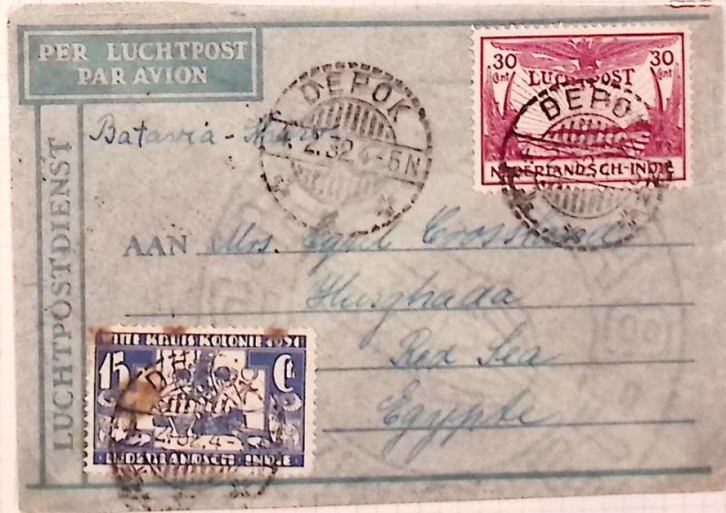 PER LUCHTPOST
PAR AVION
LUCHTPOSTDIENST
Batavia -
DEPOK
2.32 4-5N
30 cnt LUCHTPOST 30 cnt
DEPOK
NEDERLANDSCH-INDIE
AAN Mrs. Cyril Crossland
Hurghada
Red Sea
Egypte
WITTE KRUIS KOLONIE 1931
15 Ct
NEDERLANDSCH-INDIE